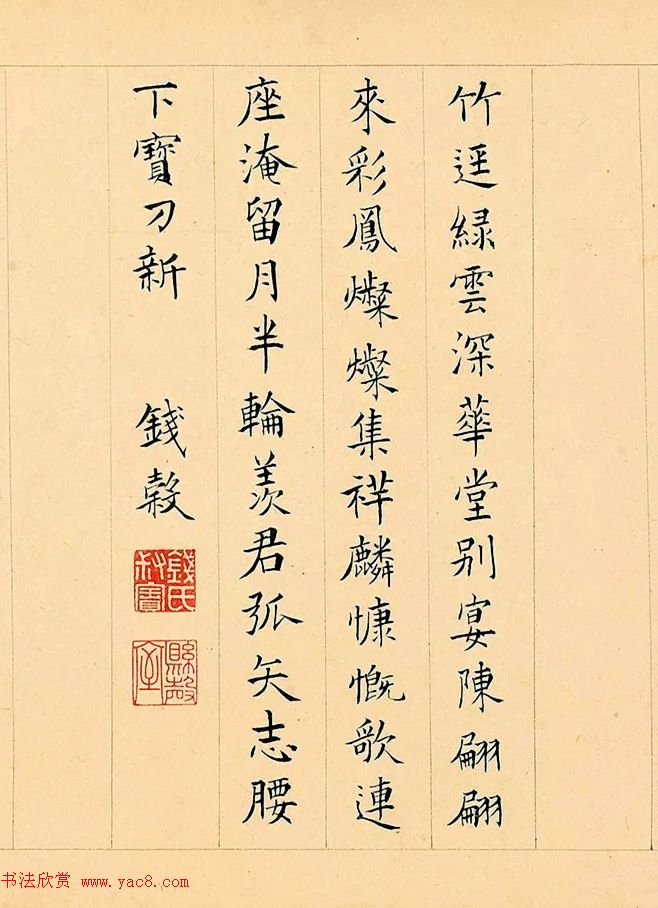 竹逕緑雲深華堂别宴陳翩翩
來彩鳳燦燦集祥麟慷慨歌連
座淹留月半輪羨君弧矢志腰
下寶刀新 錢榖
錢氏叔寶
縣磬室
书法欣赏 www.yac8.com